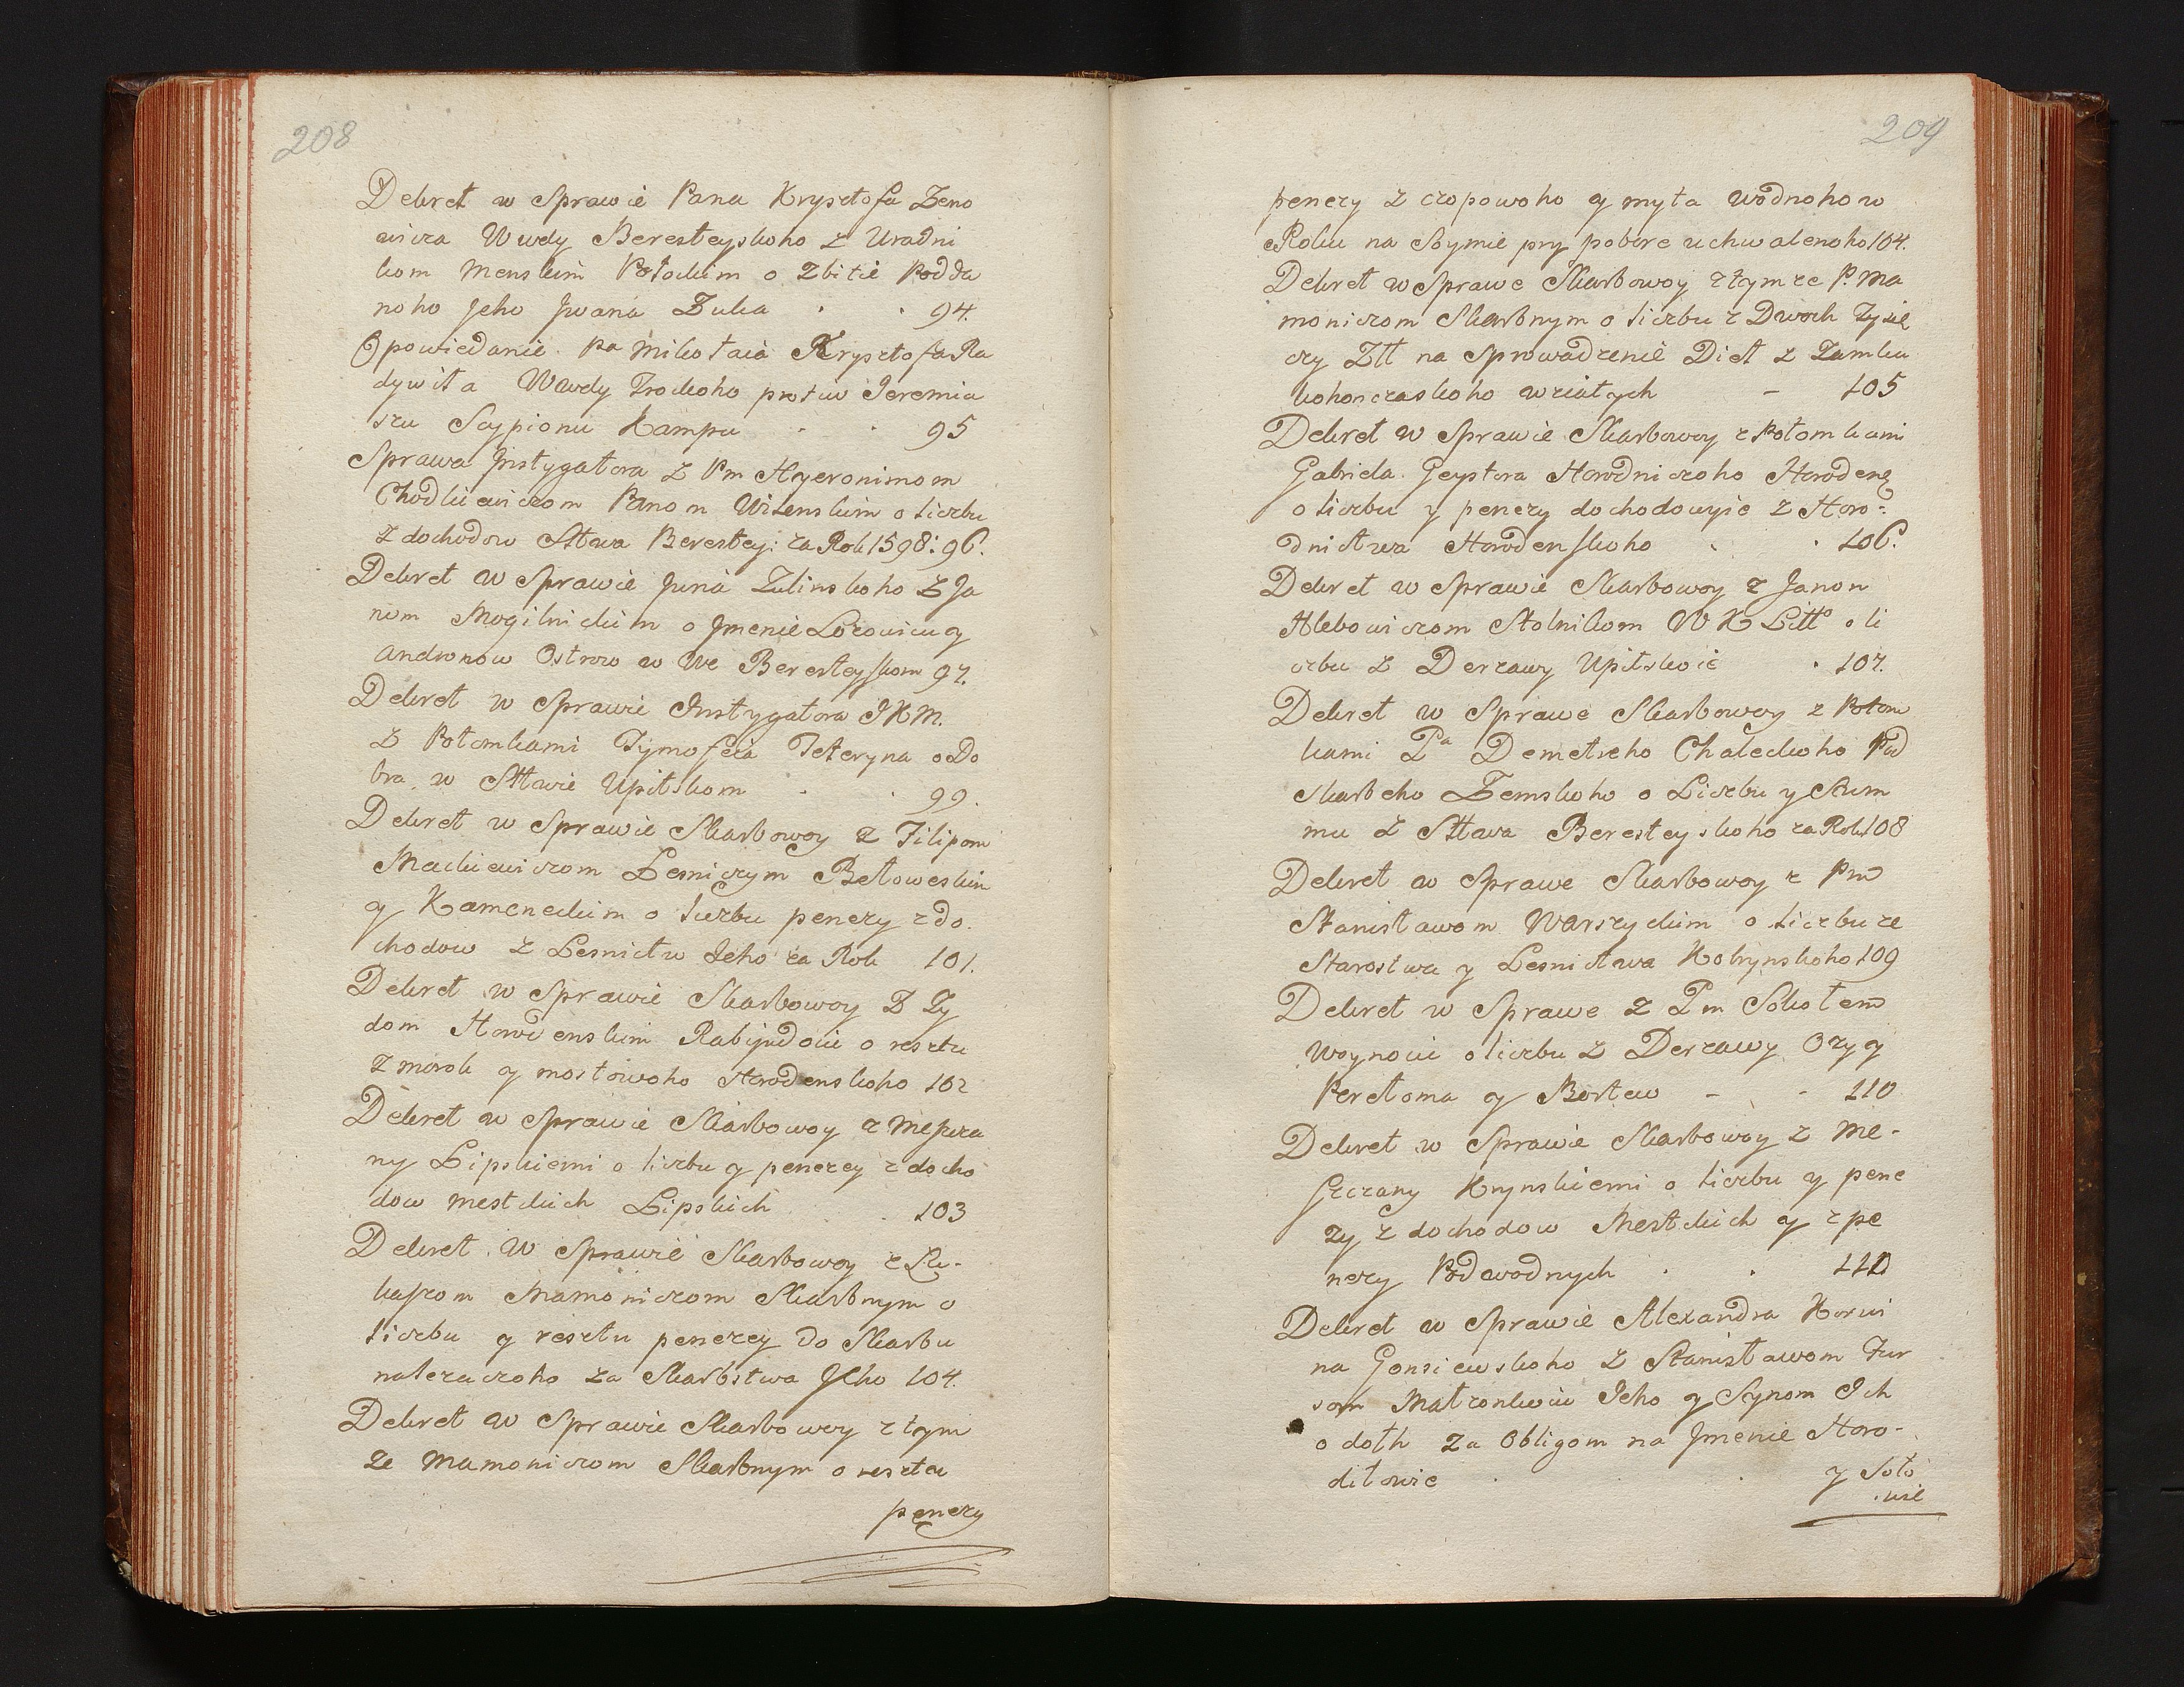 208
Dekret w Sprawie Pana Krysztofa Zeno
wicza Wwdy Beresteyskoho z Uradni
kom Menskim Potockim o Zbitie Podda
noho Jeho Jwana Zuka . . 94.
Opowiedanie Pa Mikołaia Krysztofa Ra
dywiła Wwdy Trockoho protiw Jeremia
szu Scypionu Kampu . . 95
Sprawa Jnstygatora z Pm Hyeronimom
Chodkiewiczom Panom Wilenskim o liczbu
z dochodow Sttwa Berestey: za Rok 1598: 96.
Dekret w Sprawie Juria Zulinskoho z Ja
nom Mogilnickim o Jmenie Lozowicu y
Andronow Ostrow w We Beresteyskom 97.
Dekret w Sprawie Jnstygatora JKM.
z Potomkami Tymofeia Teteryna o Do
bra w Sttwie Upitskom . . 99.
Dekret w Sprawie Skarbowoy z Filipom
Mackiewiczom Lesniczym Bełoweskim
y Kameneckim o liczbu penezy z do.
chodow z Lesnictw Jeho za Rok 101.
Dekret w Sprawie Skarbowoy Z Zy
dom Horodenskim Rabijudoiu o resztu
z morok y mostowoho Horodenskoho 102
Dekret w Sprawie Skarbowoy z Meszcza
ny Lipskiemi o liczbu y penezey z docho
dow mestckich Lipskich . 103
Dekret w Sprawie Skarbowoy z Lu-
kaszom Mamoniczom Skarbnym o
liczbu y resztu penezey do Skarbu
nalezaczoho za Skarbstwa Jeho 104.
Dekret w Sprawie Skarbowoy z tym
ze Mamoniczom Skarbnym o resztu
penezy
209
penezy z czopowoho y myta wodnoho w
Roku na Soymie pry pobore uchwalenoho 104.
Dekret w Sprawe Skarbowoy z tym ze P. Ma
moniczom Skarbnym o liczbu z Dwoch Tysie
czy Ztt na Sprowadzenie Diet z Zamku
kohonczaskoho wziatych - 105
Dekret w Sprawie Skarbowoy z Potomkami
Gabriela Geysztora Horodniczoho Horodenȩ
o liczbu y penezy dochodowyie z Horo:
dnictwa Horodenskoho . . 106.
Dekret w Sprawie Skarbowoy z Janom
Hlebowiczom Stolnikom W X Litto o li
czbu z Derzawy Upitskoie . 107.
Dekret w Sprawe Skarbowoy z Potom
kami Pa Demetreho Chaleckoho Pod
skarbeho Zemskoho o Liczbu y Sum
mu z Sttwa Beresteyskoho za Rok 108
Dekret w Sprawe Skarbowoy z Pm
Stanisławom Warszyckim o liczbu ze
Starostwa y Lesnictwa Kobrynskoho 109
Dekret w Sprawe z Pm Sokołem
Woynoiu o liczbu z Derzawy Ozy y
Perełoma y Bortew - - 110
Dekret w Sprawie Skarbowoy z Me-
szczany Krynskiemi o liczbu y pene
zy z dochodow Mestckich y z pe
nezy Podwodnych . . 111
Dekret w Sprawie Alexandra Korwi
na Gonsiewskoho z Stanisławom Fur
som Małzonkoiu Jeho y Synom Jch
o dołh za Obligom na Jmenie Horo-
diłowie . . y Soło
.wie